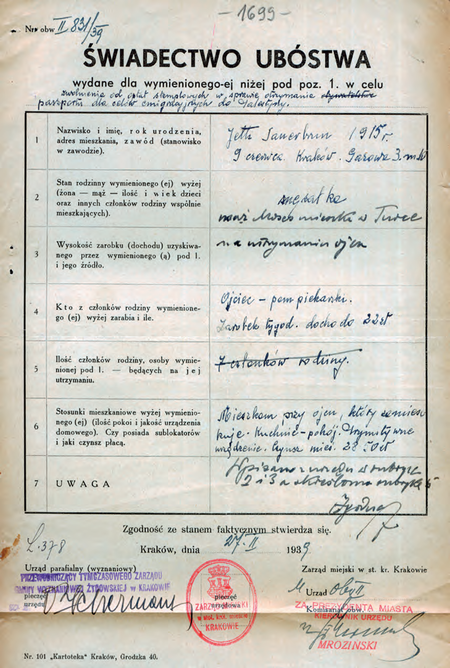 -1699-
Nr. obw II 831/39
ŚWIADECTWO UBÓSTWA
wydane dla wymienionego-ej niżej pod poz. 1. w celu
zwolnienia od opłat stemplowych w sprawie otrzymania
paszportu dla celów emigracyjnych do Palestyny.
1
Nazwisko i imię, rok urodzenia,
adres mieszkania, zawód (stanowisko
w zawodzie).
Jetta Sauerbrun 1915 r.
9 czerwca Kraków. Gazowa 3. m
2
Stan rodzinny wymienionego (ej) wyżej
(żona — mąż — ilość i wiek dzieci
oraz innych członków rodziny wspólnie
mieszkających).
mężatka
mąż mieszka w
3
Wysokość zarobku (dochodu) uzyskiwa-
nego przez wymienionego (ą) pod 1.
i jego źródło.
na utrzymaniu ojca
4
Kto z członków rodziny wymienione-
go (ej) wyżej zarabia i ile.
Ojciec - pom piekarski.
Zarobek tygod. dochodo 22 zł
5
Ilość członków rodziny, osoby wymie-
nionej pod 1. — będących na jej
utrzymaniu.
7 członków rodziny.
6
Stosunki mieszkaniowe wyżej wymienio-
nego (ej) (ilość pokoi i jakość urządzenia
domowego). Czy posiada sublokatorów
i jaki czynsz płacą.
Mieszkam przy ojcu, który zamiesz
kuje - Kuchnię - pokój. Prymitywne
urządzenie. Czynsz mies. 22 zł
7
UWAGA
Wpisano z urzędu w rubryce
2 i 3 a skreślono rubrykę 5
Zgodność ze stanem faktycznym stwierdza się.
L. 378
Kraków, dnia 27. II 1939
Urząd parafialny (wyznaniowy)
Zarząd miejski w st. kr. Krakowie
PRZEWODNICZĄCY TYMCZASOWEGO ZARZĄDU
GMINY WYZNANIOWEJ ŻYDOWSKIEJ w KRAKOWIE
pieczęć
urzędu
pieczęć
urzędowa
ZARZĄD MIEJSKI
w stoł. król. mieście
KRAKOWIE
Urząd obw II
Komisariat obw.
ZA PREZYDENTA MIASTA
KIEROWNIK URZĘDU
MROZIŃSKI
Nr. 101 „Kartoteka” Kraków, Grodzka 40.